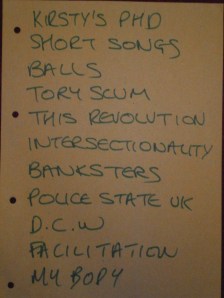 KIRSTY'S PHD
SHORT SONGS
BALLS
TORY SCUM
THIS REVOLUTION
INTERSECTIONALITY
BANKSTERS
POLICE STATE UK
D.C.W
FACILITATION
MY BODY